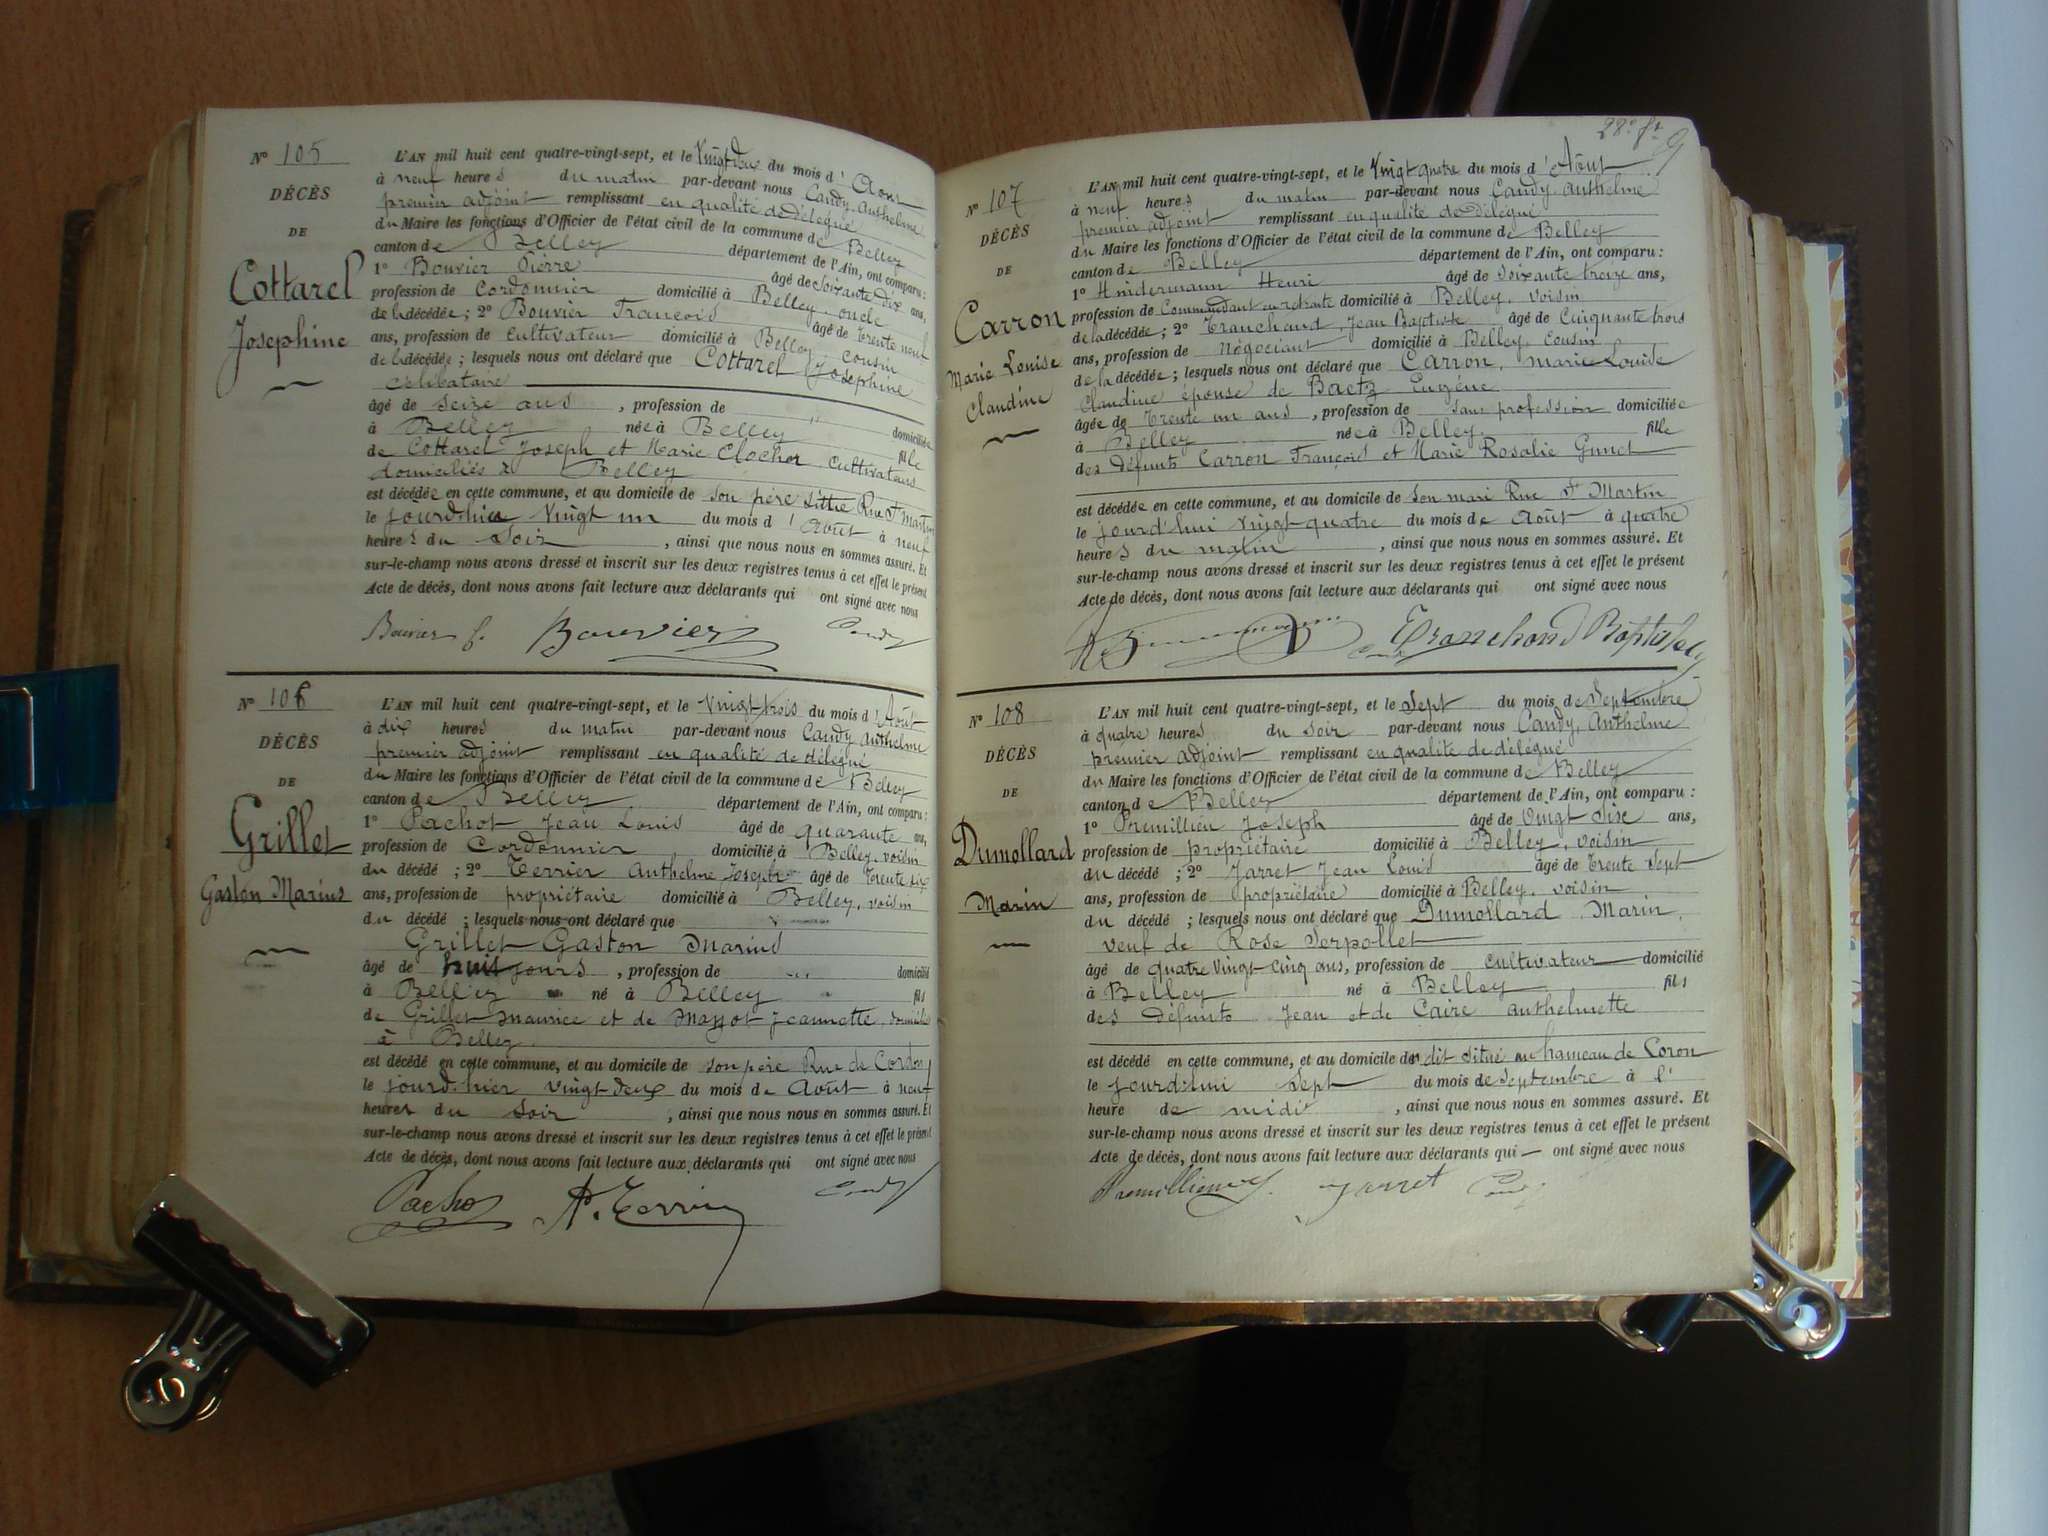 Nº 105
DÉCÈS
DE
Cottarel
Josephine
L'AN mil huit cent quatre-vingt-sept, et le Vingt deux du mois d'Aout
à neuf heures du matin par-devant nous Candy, Anthelme
premier adjoint remplissant en qualité de délégué
du Maire les fonctions d'Officier de l'état civil de la commune de Belley
canton de Belley département de l'Ain, ont comparu :
1º Bouvier Pierre âgé de soixante dix ans,
profession de cordonnier domicilié à Belley, oncle
de la décédée ; 2º Bouvier François âgé de Trente neuf
ans, profession de cultivateur domicilié à Belley, cousin
de la décédée ; lesquels nous ont déclaré que Cottarel Josephine
celibataire
âgé de seize ans , profession de " domiciliée
à Belley née à Belley fille
de Cottarel Joseph et Marie Clochet cultivateurs
domiciliés à Belley
est décédée en cette commune, et au domicile de son père Rue St Martin
le jourd'hier vingt un du mois d'Août à neuf
heures du soir , ainsi que nous nous en sommes assuré. Et
sur-le-champ nous avons dressé et inscrit sur les deux registres tenus à cet effet le présent
Acte de décès, dont nous avons fait lecture aux déclarants qui ont signé avec nous
Bouvier f. Bouvier Candy
Nº 106
DÉCÈS
DE
Grillet
Gaston Marius
L'AN mil huit cent quatre-vingt-sept, et le Vingt trois du mois d'Août
à dix heures du matin par-devant nous Candy Anthelme
premier adjoint remplissant en qualité de délégué
du Maire les fonctions d'Officier de l'état civil de la commune de Belley
canton de Belley département de l'Ain, ont comparu :
1º Pachot Jean Louis âgé de quarante ans,
profession de Cordonnier domicilié à Belley, voisin
du décédé ; 2º Terrier Anthelme Joseph âgé de Trente six
ans, profession de propriétaire domicilié à Belley, voisin
du décédé ; lesquels nous ont déclaré que
Grillet Gaston Marius
âgé de huit jours , profession de " domicilié
à Belley né à Belley fils
de Grillet Maurice et de Massot Jeannette domiciliés
à Belley
est décédé en cette commune, et au domicile de son père Rue de Cordon
le jourd'hier vingt deux du mois de Août à neuf
heures du soir , ainsi que nous nous en sommes assuré. Et
sur-le-champ nous avons dressé et inscrit sur les deux registres tenus à cet effet le présent
Acte de décès, dont nous avons fait lecture aux déclarants qui ont signé avec nous
Pachot A. Terrier Candy
28e ft
Nº 107
DÉCÈS
DE
Carron
Marie Louise
Claudine
L'AN mil huit cent quatre-vingt-sept, et le Vingt quatre du mois d'Août
à neuf heures du matin par-devant nous Candy Anthelme
premier adjoint remplissant en qualité de délégué
du Maire les fonctions d'Officier de l'état civil de la commune de Belley
canton de Belley département de l'Ain, ont comparu :
1º Hnidermann Henri âgé de soixante treize ans,
profession de Commandant en retraite domicilié à Belley, voisin
de la décédée ; 2º Tranchand, Jean Baptiste âgé de Cinquante trois
ans, profession de Négociant domicilié à Belley, cousin
de la décédée ; lesquels nous ont déclaré que Carron, Marie Louise
Claudine épouse de Baetz Eugéne
âgée de Trente un ans , profession de sans profession domiciliée
à Belley née à Belley fille
des défunts Carron François et Marie Rosalie Gunet
est décédée en cette commune, et au domicile de son mari Rue St Martin
le jourd'hui vingt quatre du mois de Août à quatre
heures du matin , ainsi que nous nous en sommes assuré. Et
sur-le-champ nous avons dressé et inscrit sur les deux registres tenus à cet effet le présent
Acte de décès, dont nous avons fait lecture aux déclarants qui ont signé avec nous
Tranchand Baptiste
Nº 108
DÉCÈS
DE
Dumollard
Marin
L'AN mil huit cent quatre-vingt-sept, et le Sept du mois de Septembre
à quatre heures du soir par-devant nous Candy, Anthelme
premier adjoint remplissant en qualité de délégué
du Maire les fonctions d'Officier de l'état civil de la commune de Belley
canton de Belley département de l'Ain, ont comparu :
1º Premillieu Joseph âgé de Vingt six ans,
profession de propriétaire domicilié à Belley, voisin
du décédé ; 2º Jarret Jean Louis âgé de Trente Sept
ans, profession de propriétaire domicilié à Belley, voisin
du décédé ; lesquels nous ont déclaré que Dumollard Marin,
veuf de Rose Serpollet
âgé de quatre vingt cinq ans, profession de cultivateur domicilié
à Belley né à Belley fils
des défunts Jean et de Caire Anthelmette
est décédé en cette commune, et au domicile de dit situé au hameau de Coron
le jourd'hui sept du mois de Septembre à l'
heure de midi , ainsi que nous nous en sommes assuré. Et
sur-le-champ nous avons dressé et inscrit sur les deux registres tenus à cet effet le présent
Acte de décès, dont nous avons fait lecture aux déclarants qui — ont signé avec nous
Premillieu Jarret Candy